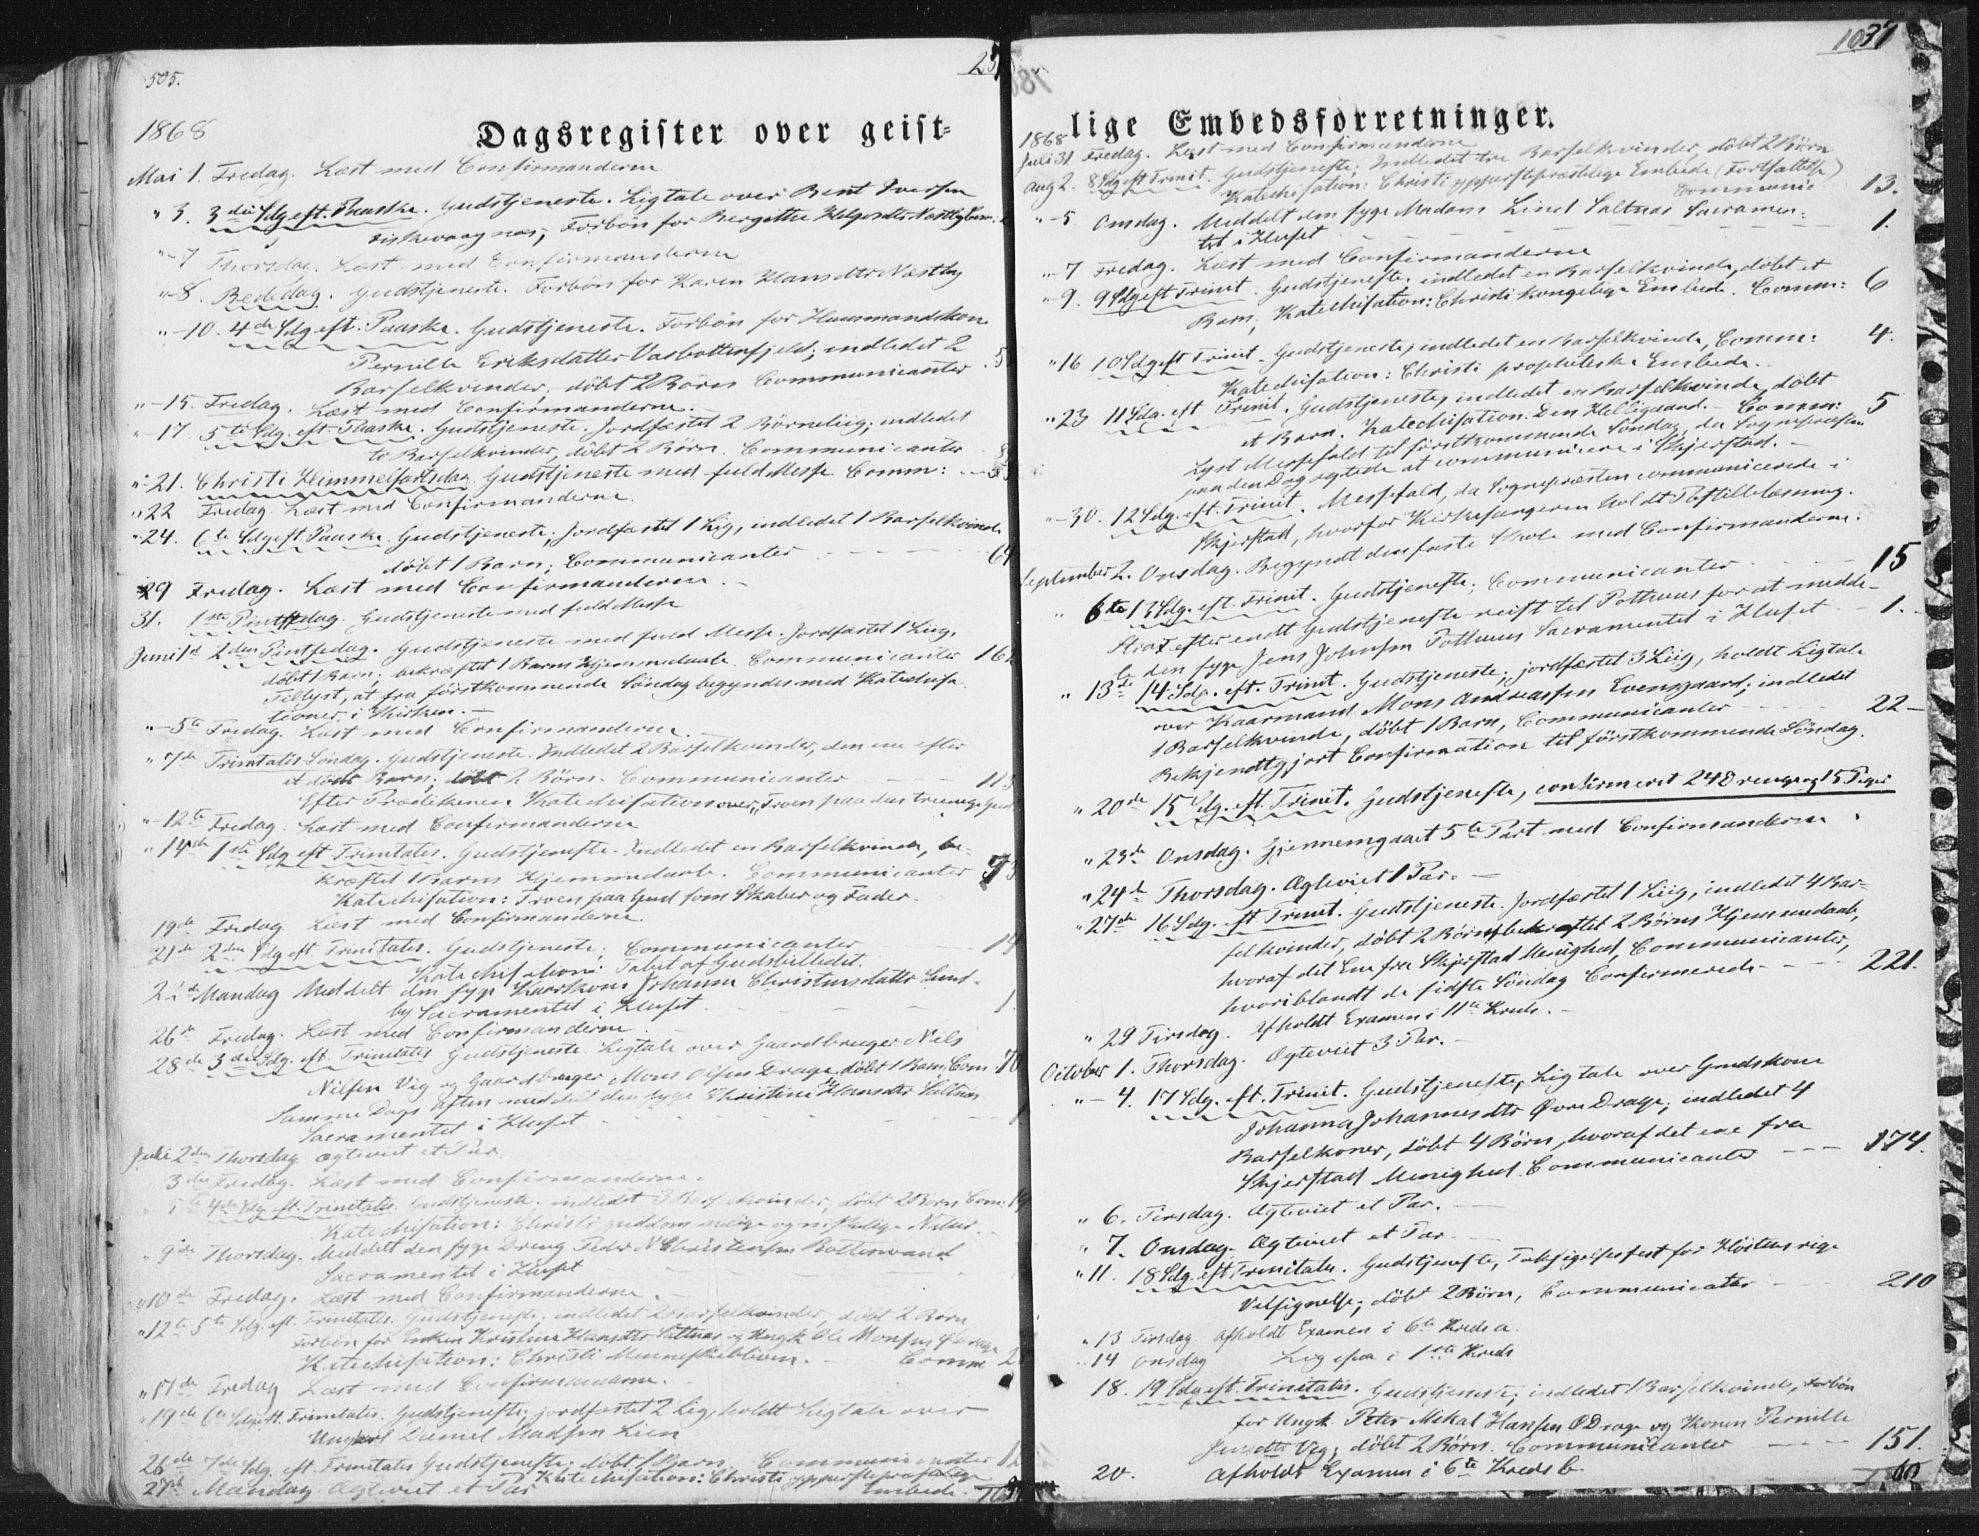 505.
1868
Dagsregister over geist-
Mai 1. Fredag. Læst med Confirmanderne
" 3. 3die Sdg eft. Paaske. Gudstjeneste. Ligtale over Bent Iversen
Fiskevaagnæs; Forbön for Bergette Helgesdtr
" - 7 Thorsdag. Læst med Confirmanderne
" - 8. Bededag. Gudstjeneste. Forbön for Karen Hansdtr Næstby
" - 10. 4de Sdg eft. Paaske. Gudstjeneste. Forbön for Huusmandskone
Pernille Eriksdatter Vasbottenfjeld; indledet 2
Barselkvinder, döbt 2 Börn Communicanter . 5
" - 15. Fredag. Læst med Confirmanderne.
" - 17. 5te Sdg. eft. Paaske. Gudstjeneste. Jordfæstet 2 Börneliig; indledet
to Barselkvinder, döbt 2 Börn. Communicanter
" 21. Christi Himmelfartsdag. Gudstjeneste med fuld Messe. Comm:
" 22 Fredag. Læst med Confirmanderne.
" 24. 6te Sdg eft Paaske. Gudstjeneste, Jordfæstet 1 Lig, indledet 1 Barselkvinde
döbt 1 Barn; Communicanter 64
29 Fredag. Læst med Confirmanderne. -
31. 1ste Pintsedag. Gudstjeneste med fuld Messe
Juni 1st 2den Pintsedag. Gudstjeneste med fuld Messe. Jordfæstet 1 Liig,
döbt 1 Barn; bekræftet 1 Barns Hjemmedaab. Communicanter 16
Tillyst, at fra förstkommende Söndag begyndes med Katechisa-
tioner i Kirken. -
" - 5te Fredag. Læst med Confirmanderne.
" 7de Trinitatis Söndag. Gudstjeneste. Indledet 2 Barselkvinder, den ene efter
et dödt Barn; döbt 2 Börn. Communicanter 113
Efter Prædikenen Katechisation over Troen paa den treenige Gud
" - 12te Fredag. Læst med Confirmanderne
" 14de 1ste Sdg eft Trinitatis. Gudstjeneste. Indledet en Barselkvinde, be-
kræftet 1 Barns Hjemmedaab. Communicanter
Katechisation: Troen paa Gud som Skaber og Fader.
19de Fredag Læst med Confirmanderne.
21de 2den Sdg eft Trinitatis. Gudstjeneste; Communicanter 14
Katechisation: Tabet af Gudsbilledet.
22de Mandag Meddelt den syge Kaarkone Johanna Christensdatter Sund-
by Sacramentet i Huset. 1.
26de Fredag. Læst med Confirmanderne.
28de 3die Sdg. eft. Trinitatis Gudstjeneste. Ligtale over Gaardbruger Nils
Nilsen Vig og Gaardbruger Mons Olsen Drage, döbt 1 Barn, Com. 70
Samme Dags Aften meddelt den syge Christine Hansdtr Saltnæs
Sacramentet i Huset. 1
Juli 2den Thorsdag Ægteviet et Par
3die Fredag. Læst med Confirmanderne.
5te 4de Sdg eft. Trinitatis. Gudstjeneste. indledet 3 Barselkvinder, döbt 2 Börn Com:
Katechisation: Christi guddommelige og menskelige Natur.
" 9de Thorsdag. Meddelt den syge Dreng Peder N Christensen Bottenvand
Sacramentet i Huset
" 10de Fredag. Læst med Confirmanderne.
" 12te 5te Sdg. eft. Trinitatis. Gudstjeneste, indledet 2 Barselkvinder, döbt 2 Börn
Forbön for Enken Kristine Hansdtr Saltnæs og Ungk. Ole Monsen Drage
Katechisation: Christi Menneskeblivn. Comm 2
" 17de Fredag Læst med Confirmanderne.
" 19de 6te Sdg eft. Trinitatis. Gudstjeneste, jordfæstet 2 Lig, holdt Ligtale over
Ungkarl Daniel Madsen Lien
26de 7de Sdg. eft. Trinitatis Gudstjeneste; döbt 1 Barn, Communicanter 12
Katechisation: Christi ypperstepræstelige
27de Mandag Ægteviet et Par Embede.
1037
lige Embedsforretninger.
1868
Juli 31 Fredag. Læst med Confirmanderne
Aug 2. 8 Sdg eft Trinit. Gudstjeneste; Indledet tre Barselkvinder, döbt 2 Börn
Katechisation: Christi ypperstepræstelige Embede (Fortsættelse)
Communic 13.
" - 5. Onsdag. Meddelt den syge Madam Lind Saltnæs Sacramen-
tet i Huset 1.
" - 7 Fredag. Læst med Confirmanderne
" - 9. 9 Sdg eft Trinit. Gudstjeneste, indledet en Barselkvinde, döbt et
Barn; Katechisation: Christi kongelige Embede. Comm: 6
" 16 10 Sdg eft Trinit. Gudstjeneste; indledet en Barselkvinde, Comm: 4.
Katechisation: Christi prophetiske Embede.
" 23 11 Sdg. eft. Trinit. Gudstjeneste, indledet en Barselkvinde, döbt
et Barn. Katechisation: Den Helligaand. - Comm: 5
Lyst Messefald til förstkommende Söndag, da Sognepræsten
paa den Dag agtede at communicere i Skjerstad. -
" - 30. 12 Sdg. eft. Trinit. Messefald, da Sognepræsten communicerede i
Skjerstad, hvorfor Kirkesangeren holdt Postillelæsning.
September 2. Onsdag. Begyndt den faste Skole med Confirmanderne.
" 6te 13 Sdg. eft. Trinit. Gudstjeneste; Communicanter 15
Strax efter endt Gudstjeneste reist til Pothus for at medde-
le den syge Jens Johnsen Pothus Sacramentet i Huset 1. -
" 13de 14 Sdg. eft. Trinit. Gudstjeneste; jordfæstet 3 Liig, holdt Ligtale
over Kaarmand Mons Andreassen Evensgaard; indledet
1 Barselkvinde, döbt 1 Barn, Communicanter 22 -
Bekjendtgjort Confirmation til förstkommende Söndag.
" 20de 15 Sdg. eft. Trinit. Gudstjeneste, confirmeret 24 Drenge og 15 Piger
" 23de Onsdag. Gjennemgaaet 5te Part med Confirmanderne.
" 24de Thorsdag. Ægteviet 1 Par. -
" 27de 16 Sdg. eft Trinit. Gudstjeneste. Jordfæstet 1 Liig, indledet 4 Bar-
selkvinder, döbt 2 Börn, bekræftet 2 Börns Hjemmedaab,
hvoraf det Ene fra Skjerstad Menighed, Communicanter,
hvoriblandt de sidste Söndag Confirmerede - - - 221.
" 29 Tirsdag. Afholdt Examen i 11te Kreds. -
October 1. Thorsdag. Ægteviet 3 Par. -
" - 4. 17 Sdg. eft. Trinit. Gudstjeneste, Ligtale over Gaardskone
Johanna Johannesdtr Övre Drage; indledet 4
Barselkoner, döbt 4 Börn, hvoraf det ene fra
Skjerstad Menighed. Communicanter - - - 174.
" 6. Tirsdag. Ægteviet et Par.
" 7. Onsdag. Ægteviet et Par
" 11. 18 Sdg. eft Trinitatis. Gudstjeneste, Taksigelsesfest for Höstens rige
Velsignelse; döbt 2 Börn, Communicanter 210
" 13 Tirsdag afholdt Examen i 6te Kreds a.
" 14 Onsdag Ligesaa i 1ste Kreds
18. 19 Sdg eft. Trinitatis. Gudstjeneste; indledet 1 Barselkvinde, Forbön
for Ungk. Peter Mikal Hansen Ö Drage og Konen Pernille
Jensdtr Vig; döbt 2 Börn. Communicanter - - - 151.
20. Afholdt Examen i 6te Kreds b.